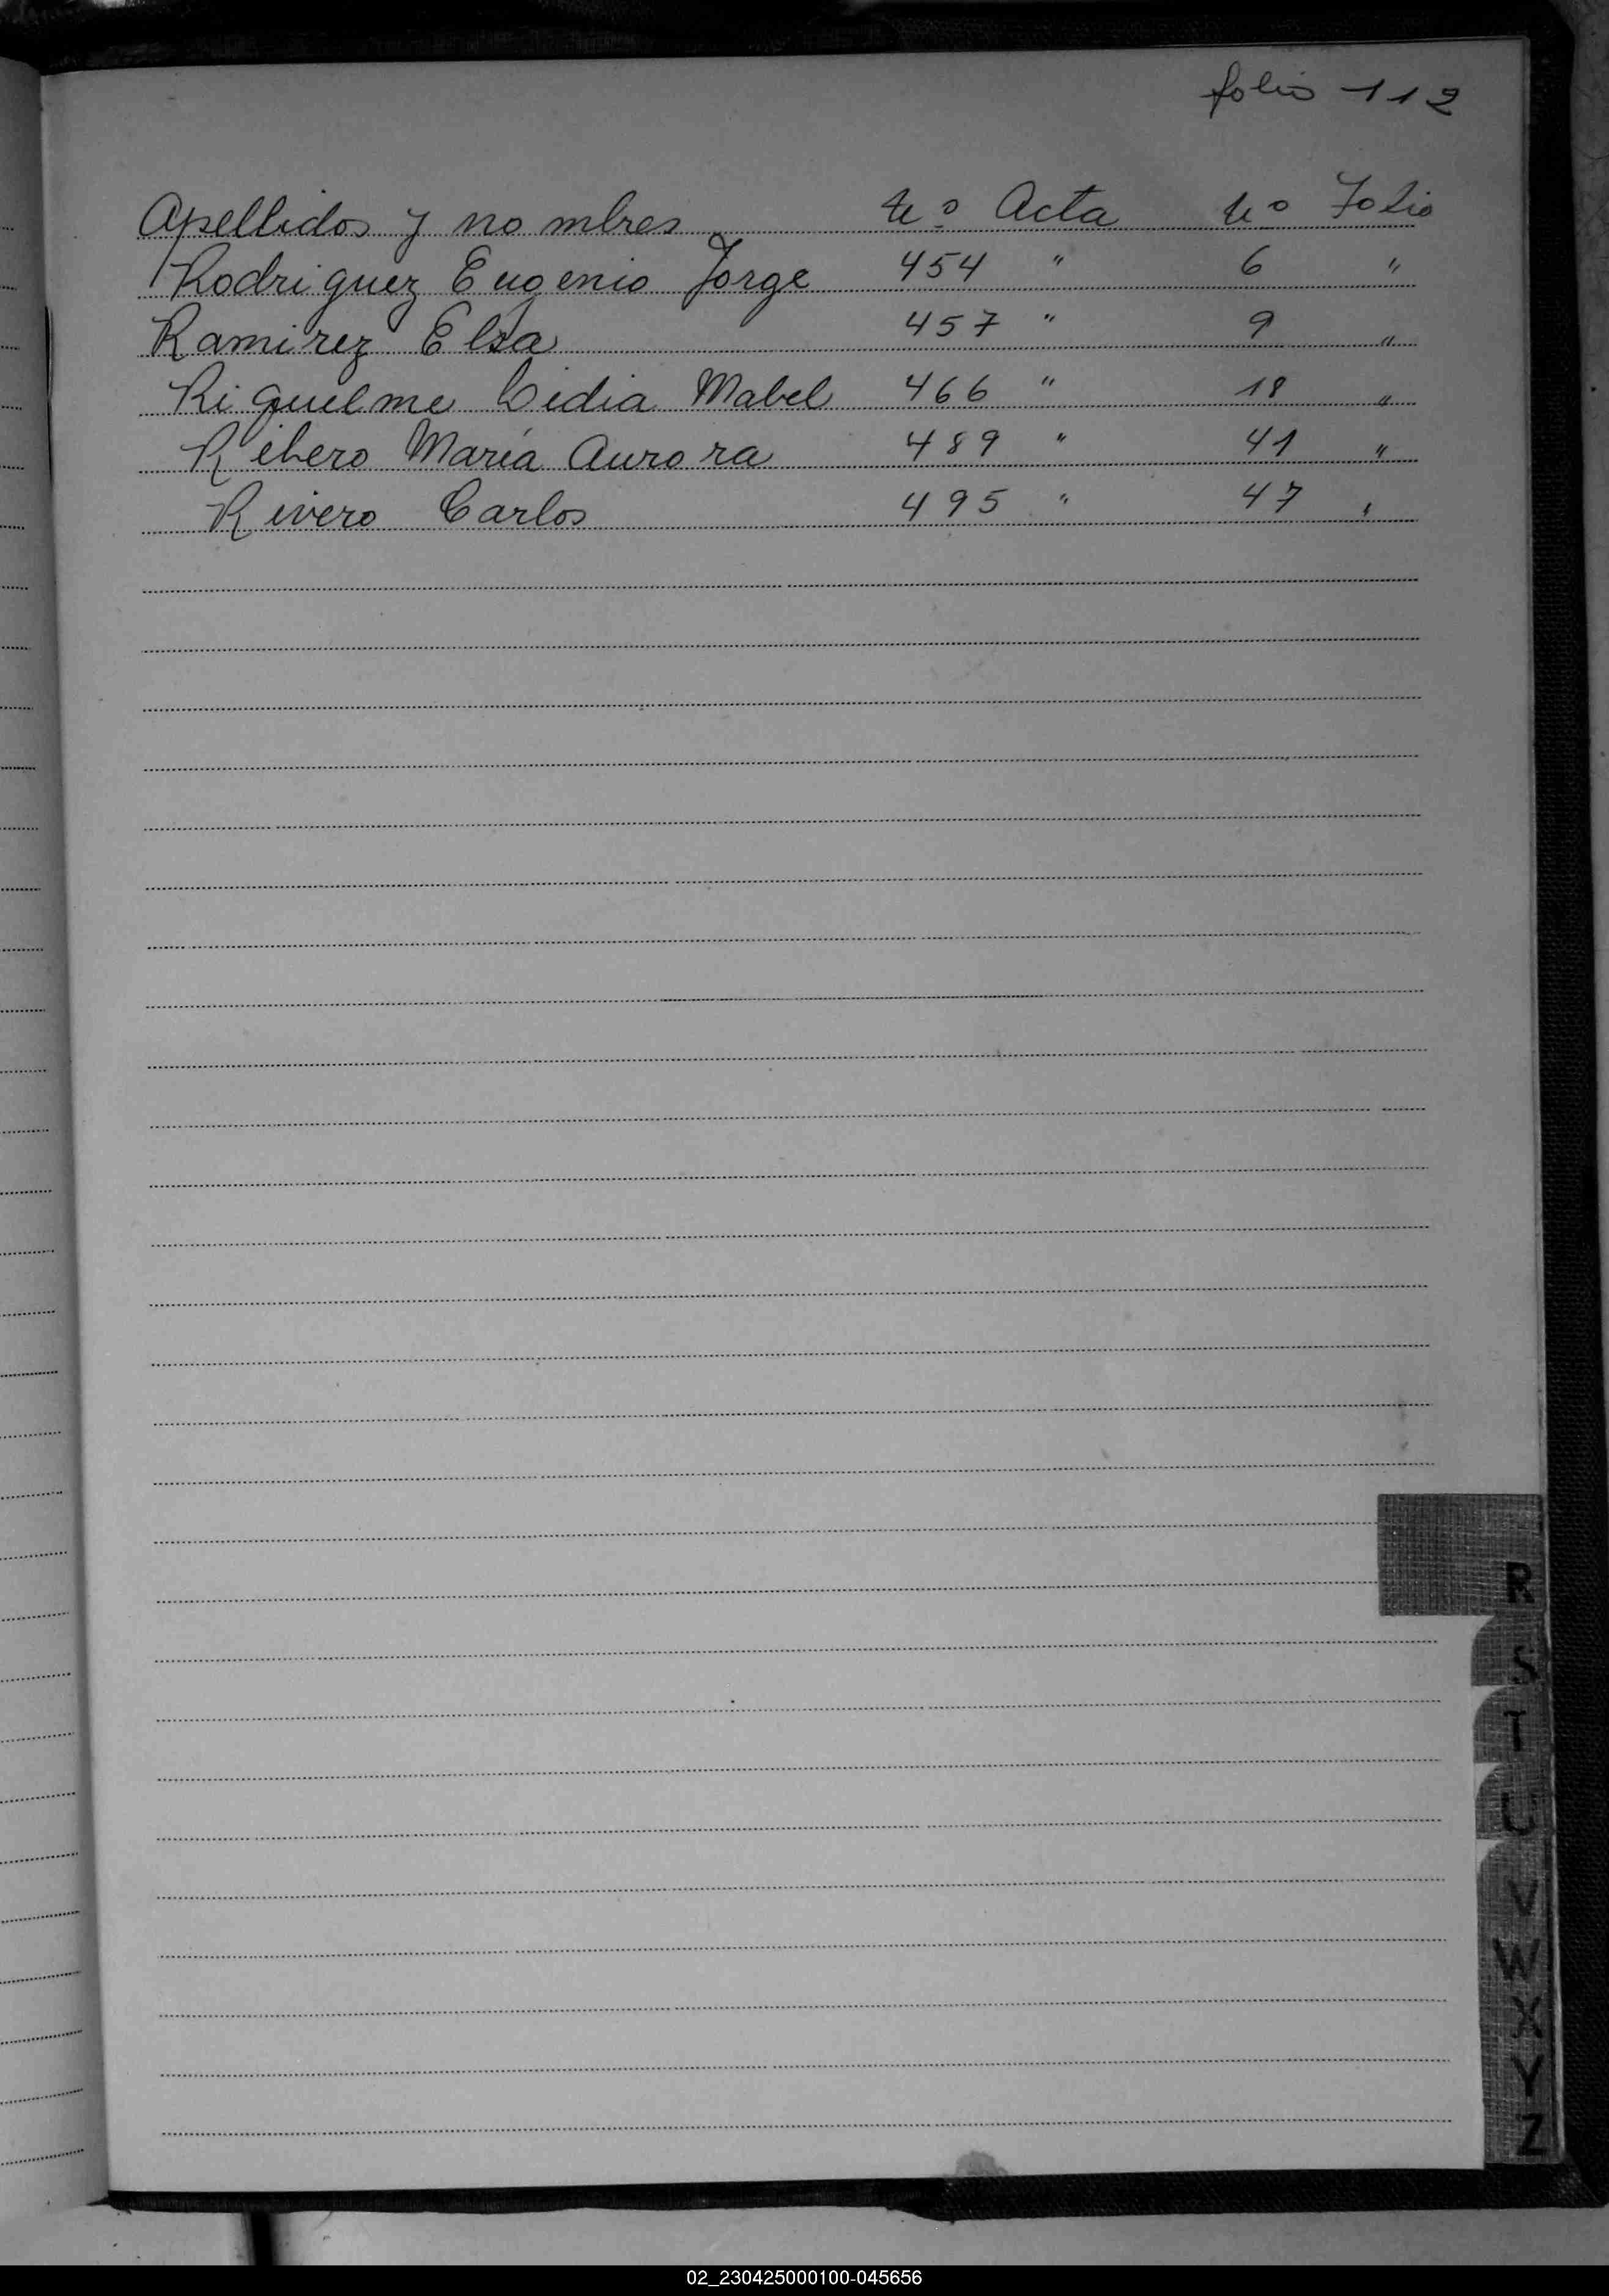 folio 112
Apellidos y nombres Nº Acta Nº Folio
Rodriguez Eugenio Jorge 454 " 6 "
Ramirez Elsa 457 " 9 "
Riquelme Lidia Mabel 466 " 18 "
Ribero María Aurora 489 " 41 "
Rivero Carlos 495 " 47 "
R
S
T
U
V
W
X
Y
Z
02_230425000100-045656